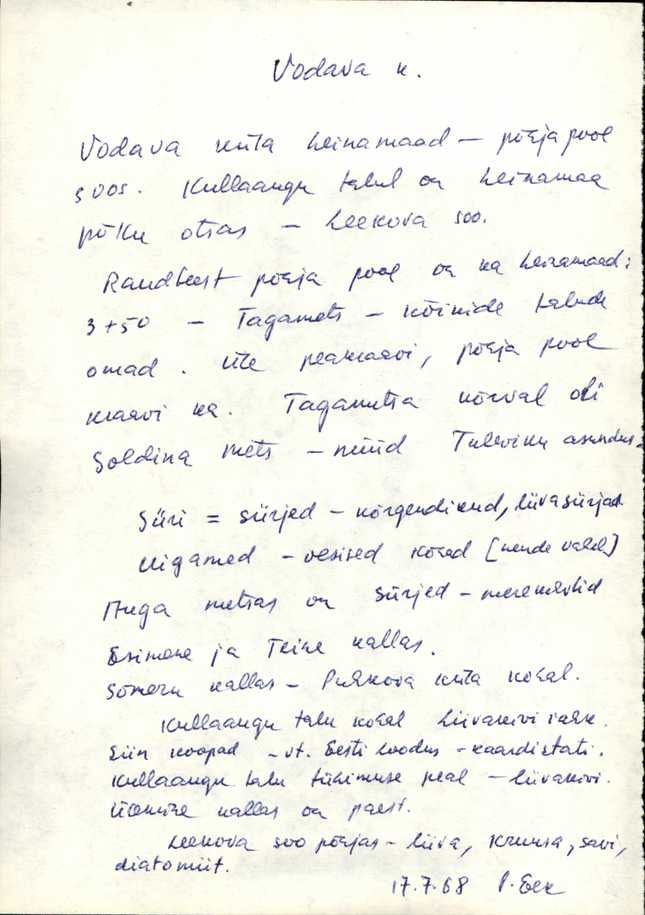 Vodava k.
Vodava küla heinamaad – põhja pool
soos. Kullaaugu talul on heinamaa
põllu otsas – Leekova soo.
Raudteest põhja pool on ka heinamaad:
3+50 – Tagamets – kõikide talude
omad. Üle peakraavi, põhja pool
kraavi ka. Tagametsa kõrval oli
Soldina mets – nüüd Tuleviku asundus.
Süri = sürjed – kõrgendikud, liivasürjad
Uigamed – vesised kohad [nende vahel]
Auga metsas on sürjed – meremärkid
Esimene ja Teine kallas.
Sõmeru kallas – Puhkova küla kohal.
Kullaaugu talu kohal liivakivi
Siin koopad – vt. Eesti Loodus – kaardistati.
Kullaaugu talu tühimuse peal – liivakivi.
Ülemine kallas on paest.
Leekova soo põhjas – liiva, kruusa, savi,
diatomiit.
17.7.68 P. Eek